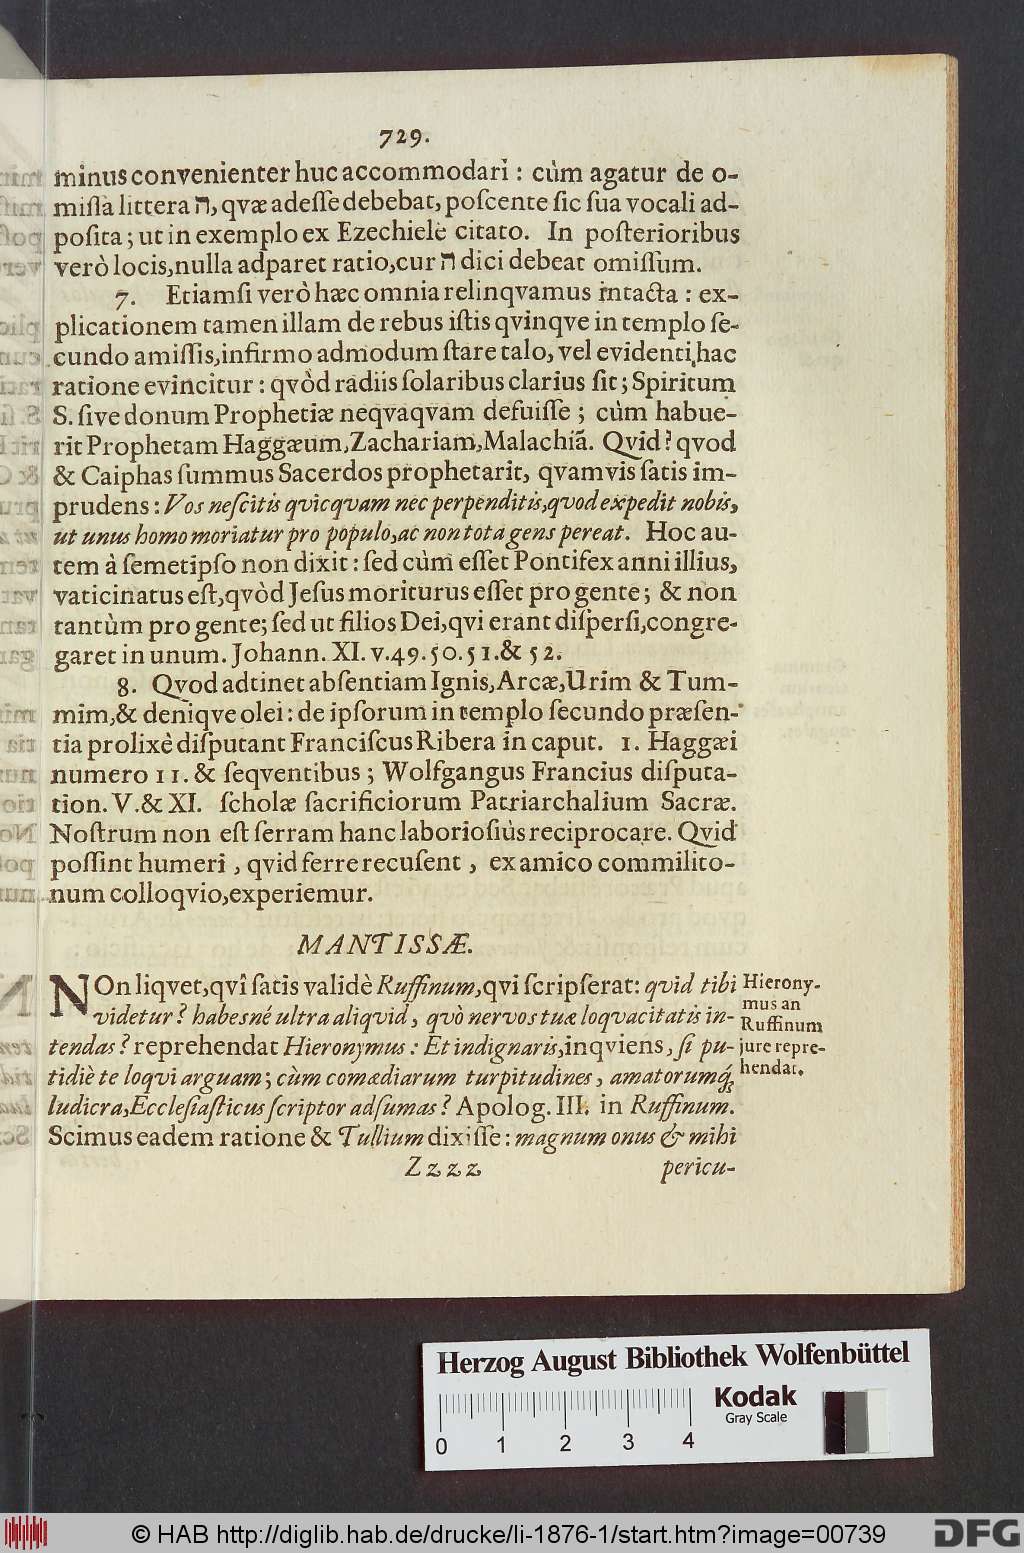 729.
minus convenienter huc accommodari : cùm agatur de o-
miſsa littera ה, qvæ adeſſe debebat, poſcente ſic ſua vocali ad-
poſita ; ut in exemplo ex Ezechiele citato. In poſterioribus
verò locis, nulla adparet ratio, cur ה dici debeat omiſſum.
7. Etiamſi verò hæc omnia relinqvamus intacta : ex-
plicationem tamen illam de rebus iſtis qvinqve in templo ſe-
cundo amiſſis, infirmo admodum ſtare talo, vel evidenti hac
ratione evincitur : qvòd radiis ſolaribus clarius ſit ; Spiritum
S. ſive donum Prophetiæ neqvaqvam defuiſſe ; cùm habue-
rit Prophetam Haggæum, Zachariam, Malachiã. Qvid? qvod
& Caiphas ſummus Sacerdos prophetarit, qvamvis ſatis im-
prudens : Vos neſcitis qvicqvam nec perpenditis, qvod expedit nobis,
ut unus homo moriatur pro populo, ac non tota gens pereat. Hoc au-
tem à ſemetipſo non dixit : ſed cùm eſſet Pontifex anni illius,
vaticinatus eſt, qvòd Jeſus moriturus eſſet pro gente ; & non
tantùm pro gente ; ſed ut filios Dei, qvi erant diſperſi, congre-
garet in unum. Johann. XI. v. 49. 50. 51. & 52.
8. Qvod adtinet abſentiam Ignis, Arcæ, Urim & Tum-
mim, & deniqve olei : de ipſorum in templo ſecundo præſen-
tia prolixè diſputant Franciſcus Ribera in caput. 1. Haggæi
numero 11. & ſeqventibus ; Wolfgangus Francius diſputa-
tion. V. & XI. ſcholæ ſacrificiorum Patriarchalium Sacræ.
Noſtrum non eſt ſerram hanc laborioſiùs reciprocare. Qvid
poſſint humeri , qvid ferre recuſent , ex amico commilito-
num colloqvio, experiemur.
MANTISSÆ.
NOn liqvet, qvî ſatis validè Ruffinum, qvi ſcripſerat : qvid tibi
videtur? habesné ultra aliqvid, qvò nervos tuæ loqvacitatis in-
tendas? reprehendat Hieronymus : Et indignaris, inqviens, ſi pu-
tidiè te loqvi arguam ; cùm comædiarum turpitudines, amatorumq́;
ludicra, Eccleſiaſticus ſcriptor adſumas? Apolog. III. in Ruffinum.
Scimus eadem ratione & Tullium dixiſſe : magnum onus & mihi
Hierony-
mus an
Ruffinum
jure repre-
hendat.
Zzzz
pericu-
Herzog August Bibliothek Wolfenbüttel
Kodak
Gray Scale
0 1 2 3 4
© HAB http://diglib.hab.de/drucke/li-1876-1/start.htm?image=00739
DFG